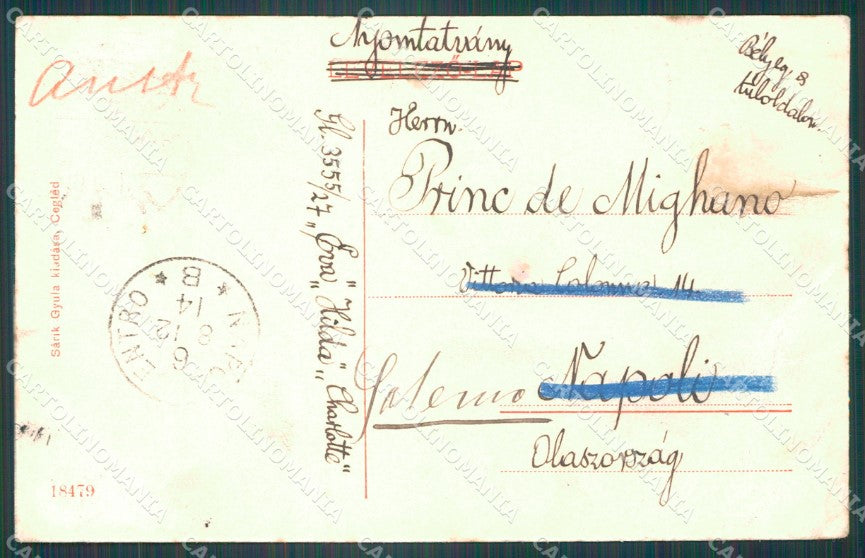 Nyomtatvány
Bélyeg a
túloldalon.
Herrn.
Princ de Mighano
Vittoria Colonna 14.
Salerno Napoli
Olaszország
Gl. 3555/27 „Éva" „Hilda" „Charlotte"
Sárik Gyula kiadása, Cegléd
18479
ENTRO
6 12
8
14
8
CARTOLINOMANIA